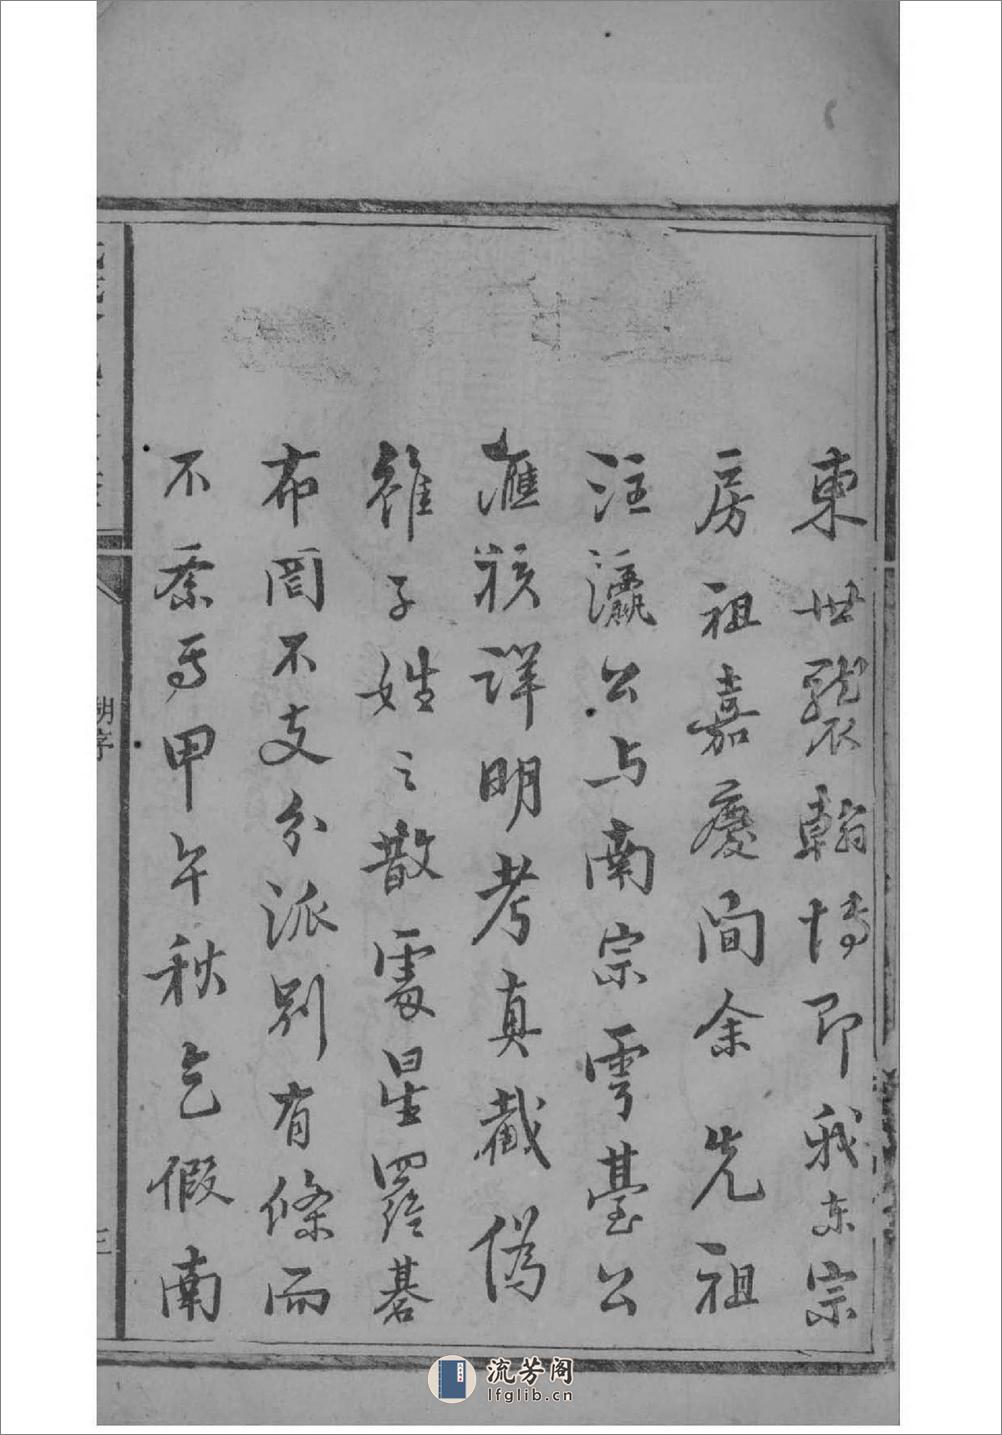 東世襲翰博即我东宗
房祖嘉慶间余先祖
注瀛公与南宗雲臺公
滙核详明考真截偽
雖子姓之散處星羅碁
布罔不支分派别有條而
不紊焉甲午秋乞假南
胡字
三
流芳阁
lfglib.cn